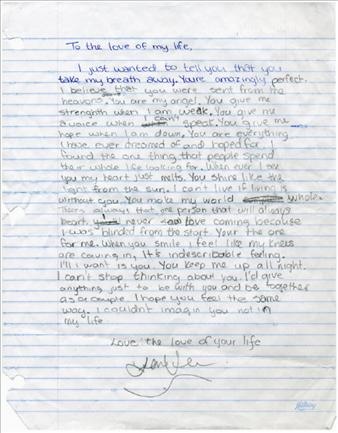 To the love of my life,
I just wanted to tell you that you
take my breath away. Youre amazingly perfect.
I believe that you were sent from the
heavens. You are my angel. You give me
strength when I am weak. You give me
a voice when I can't speak. You give me
hope when I am down. You are everything
I have ever dreamed of and hoped for. I
found the one thing that people spend
their whole life looking for. When ever I see
you my heart just melts. You shine like the
light from the sun. I can't live if living is
without you. You make my world whole.
Theres always that one person that will always
heart. never saw love coming because
I was blinded from the start. Your the one
for me. When you smile I feel like my knees
are caving in. It's indescribable feeling.
All I want is you. You keep me up all night.
I can't stop thinking about you. I'd give
anything just to be with you and be together
as a couple. I hope you feel the same
way. I couldn't imagin you not in
my life
Love, the love of your life